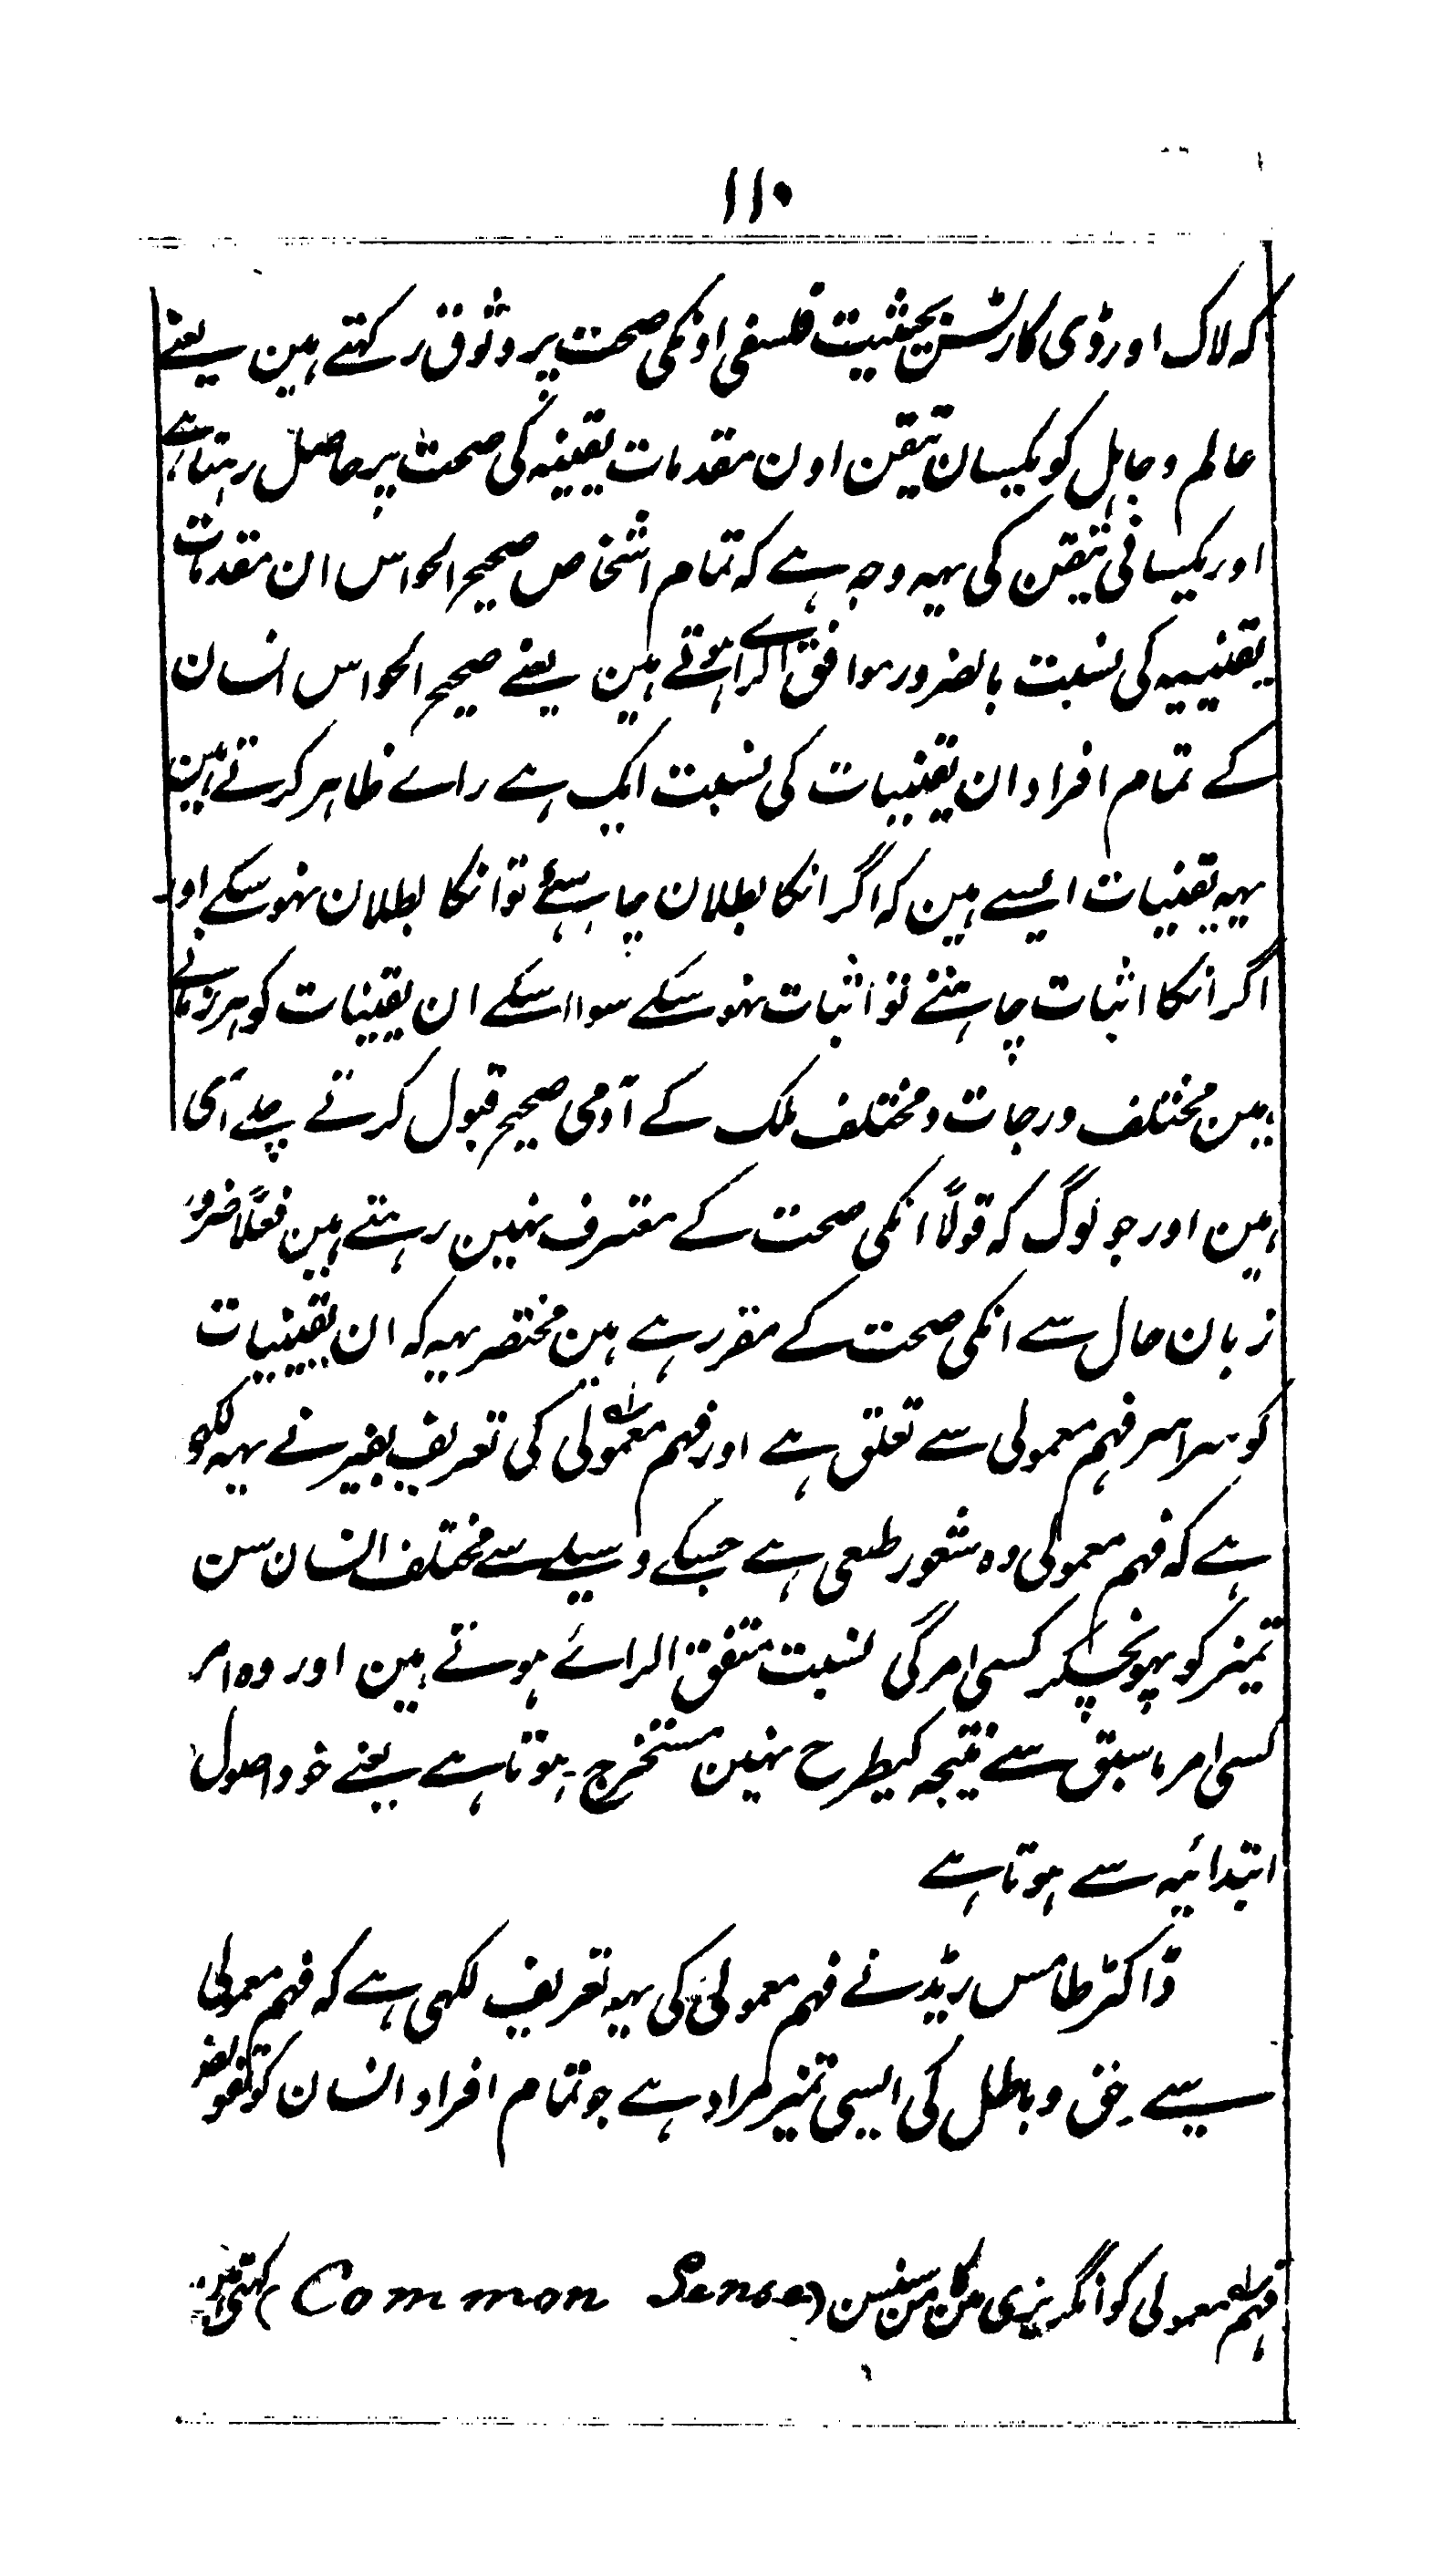 ۱۱۰
کہ لاک اور ڈی کارٹسن بحیثیت فلسفی اونکی صحت پر وثوق رکہتے ہین یعنے
عالم و جاہل کو یکسان تیقن اون مقدمات یقینیہ کی صحت پر حاصل رہتا ہے
اور یکسانی تیقن کی یہہ وجہ ہے کہ تمام اشخاص صحیح الحواس ان مقدمات
یقینیہ کی نسبت بالضرور موافق الراے ہوتے ہین یعنے صحیح الحواس انسان
کے تمام افراد ان یقینیات کی نسبت ایک ہے راے ظاہر کرتے ہین
یہہ یقینیات ایسے ہین کہ اگر انکا بطلان چاہیئے تو انکا بطلان نہو سکے اور
اگر انکا اثبات چاہتئے تو اثبات نہو سکے سوا اسکے ان یقینات کو ہر زمانے
مین مختلف درجات و مختلف ملک کے آدمی صحیح قبول کرتے چلے آی
ہین اور جو لوگ کہ قولاً انکی صحت کے معترف نہین رہتے ہین فعلاً ضرور
زبان حال سے انکی صحت کے مقر رہے ہین مختصر یہہ کہ ان یقینیات
کو سراسر فہم معمولی سے تعلق ہے اور فہم معمولی کی تعریف بفیر نے یہہ لکھو
ہے کہ فہم معمولی وہ شعور طبعی ہے جسکے وسیلے سے مختلف انسان سن
تمیز کو پہونچکر کسی امر کی نسبت متفق الرائے ہوتے ہین اور وہ امر
کسی امر ماسبق سے نتیجہ کیطرح نہین مستخرج ہوتا ہے یعنے خود اصول
ابتدائیہ سے ہوتا ہے
ڈاکٹر طامس ریڈ نے فہم معمولی کی یہہ تعریف لکھی ہے کہ فہم معمولی
سے حق و باطل کی ایسی تمیز مراد ہے جو تمام افراد انسان کو تفویض
فہم معمولی کو انگریزی مین کامن سنس (Common Sense) کہتے ہین